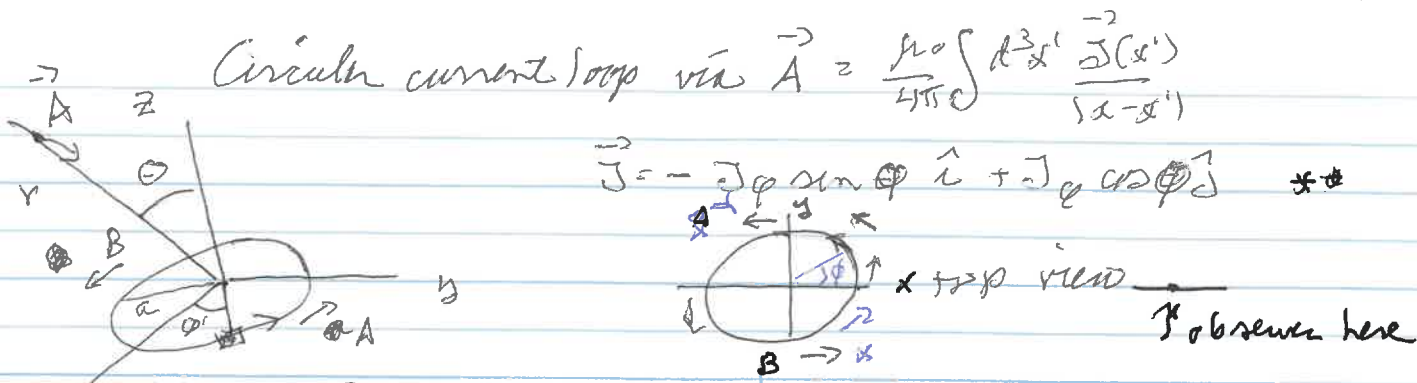 Circular current loop via \vec{A} = \frac{\mu_0}{4\pi} \int d^3x' \frac{\vec{J}(x')}{|x-x'|}
\vec{J} = - J_φ sin φ \hat{i} + J_φ cos φ \hat{j} **
\vec{A} z
r θ
A y
B a φ' A y
φ x top view
B observer here